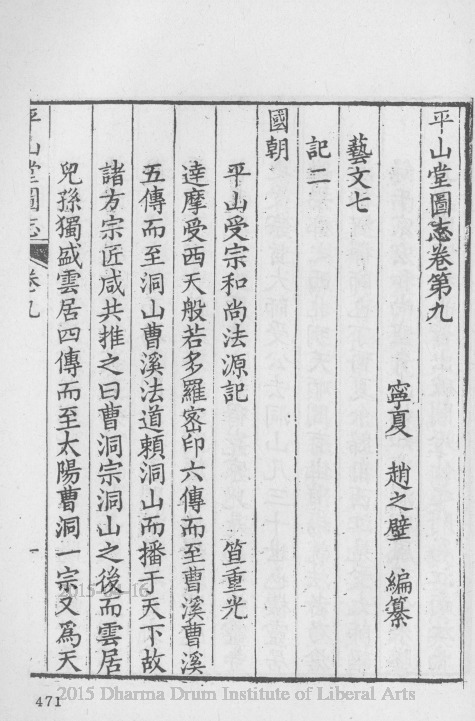 平山堂圖志卷第九
寧夏 趙之壁 編纂
藝文七
記二
國朝
平山受宗和尚法源記 笪重光
達摩受西天般若多羅密印六傳而至曹溪曹溪
五傳而至洞山曹溪法道賴洞山而播于天下故
諸方宗匠咸共推之曰曹洞宗洞山之後而雲居
兒孫獨盛雲居四傳而至太陽曹洞一宗又為天
平山堂圖志 卷九 一
471
2015 Dharma Drum Institute of Liberal Arts